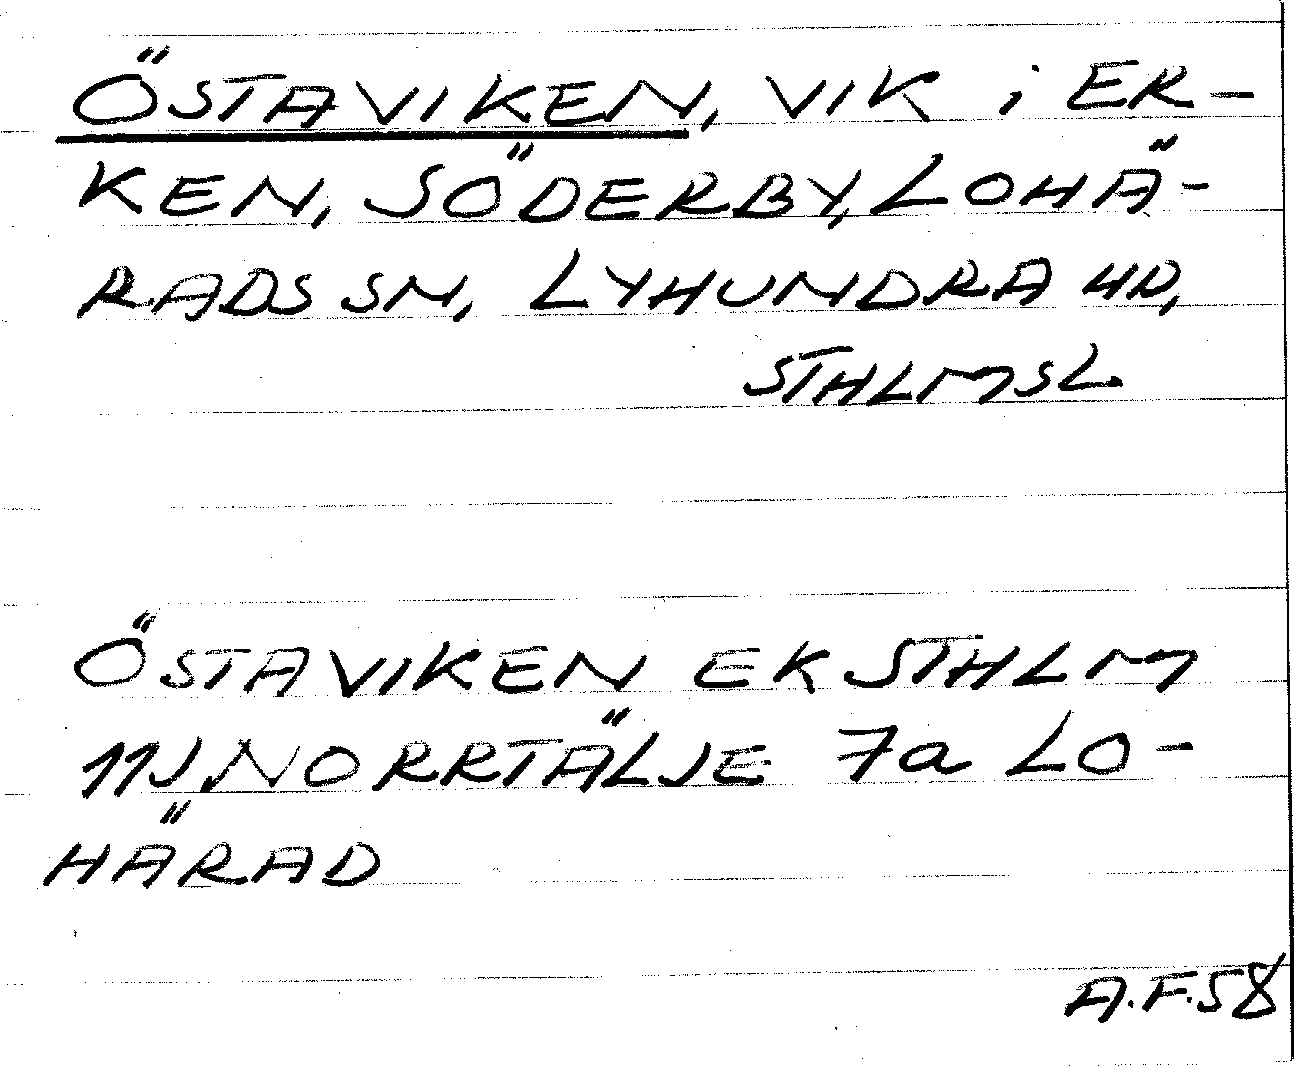 ÖSTAVIKEN, VIK i ER-
KEN, SÖDERBY, LOHÄ-
RADS SN, LYHUNDRA HD,
STHLMSL.
ÖSTAVIKEN EK STHLM
11J NORRTÄLJE 7a LO-
HÄRAD
A.F.58